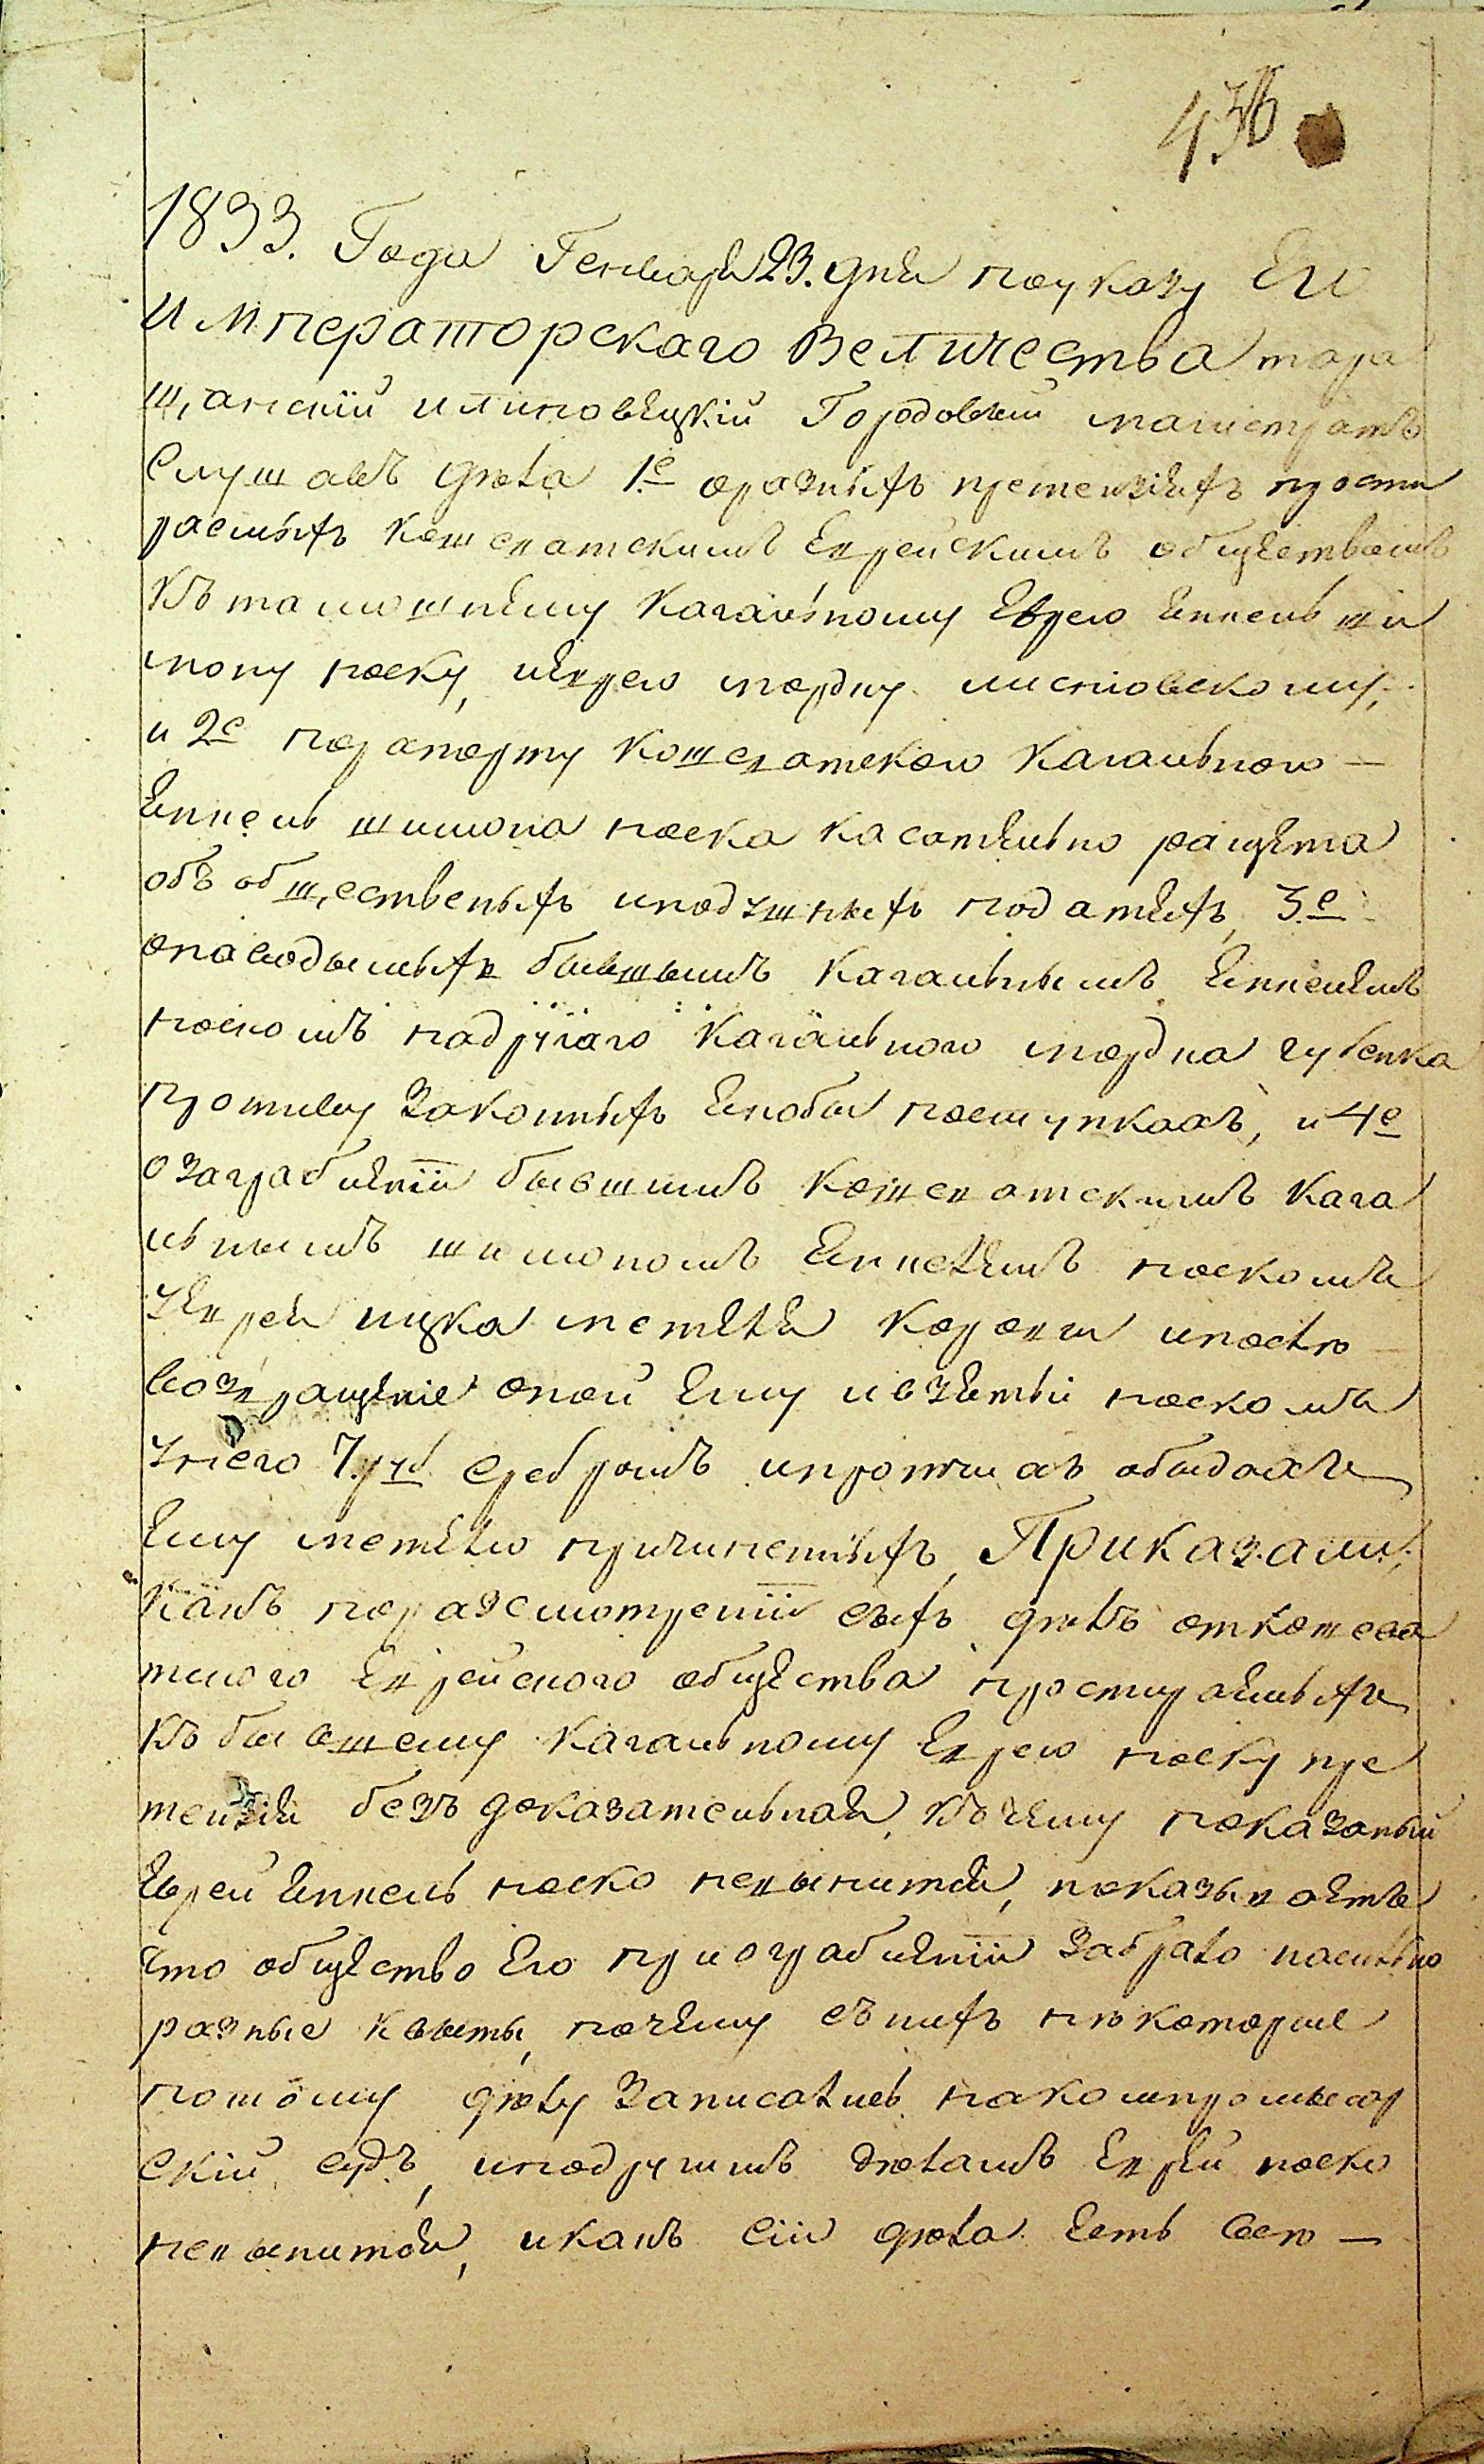 436
1833. Года Генваря 23. дня поуказу Его
Императорскаго Величества тара
щанскій илиповѣцкій Городовый магистратъ
Слушавъ дѣла 1.е оразныхъ претензіяхъ прости
раемыхъ кошеватскимъ Еврейскимъ обществомъ
Къ тамошнему Кагальному Еврею Еппель ши
мону поску, иеврею мордку лисповскому,
и 2е порапорту кошеватского Кагального —
Еппель шимона поска касательно ращета
объ общественыхъ иподушныхъ податяхъ, 3.е
опаводымыхъ бывшымъ Кагальнымъ Еппелемъ
поскомъ надругаго Кагального мордка губенка
противу Законныхъ якобы поступкахъ, и 4е
о заграбленіи бывшимъ кошеватскимъ Кага
льнымъ шимономъ Еппелемъ поскомъ
уеврея ицка метеля коровы ипосль
возвращеніе оной Ему ивзятьи поскомъ
унего 7.руб сребромъ ипротчихъ обыдахъ
Ему метелю причиненныхъ, Приказали;
Какъ поразсмотреніи сыхъ дѣлъ откошева
тского Еврейского общества простираемыхъ
къ бывшему Кагальному Еврею поску пре
тензіи безъ доказательной, кочему показаный
Еврей Еппель поско неявытой, показываетъ
что общество Его приограбленіи забрало насильно
разные квыты, почему съ нихъ нѣкоторые
потому дѣлу Записались накомпромысор
скій судъ, иподругимъ дѣламъ Еврей поско
неявытой, икакъ сіи дѣла Есть свою —